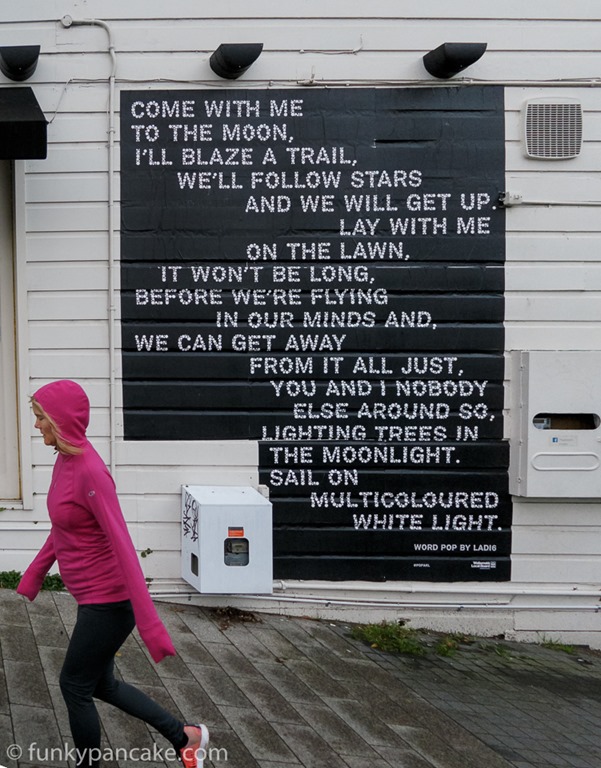 COME WITH ME
TO THE MOON,
I'LL BLAZE A TRAIL,
WE'LL FOLLOW STARS
AND WE WILL GET UP.
LAY WITH ME
ON THE LAWN,
IT WON'T BE LONG,
BEFORE WE'RE FLYING
IN OUR MINDS AND,
WE CAN GET AWAY
FROM IT ALL JUST,
YOU AND I NOBODY
ELSE AROUND SO,
LIGHTING TREES IN
THE MOONLIGHT.
SAIL ON
MULTICOLOURED
WHITE LIGHT.
WORD POP BY LADI6
© funkypancake.com